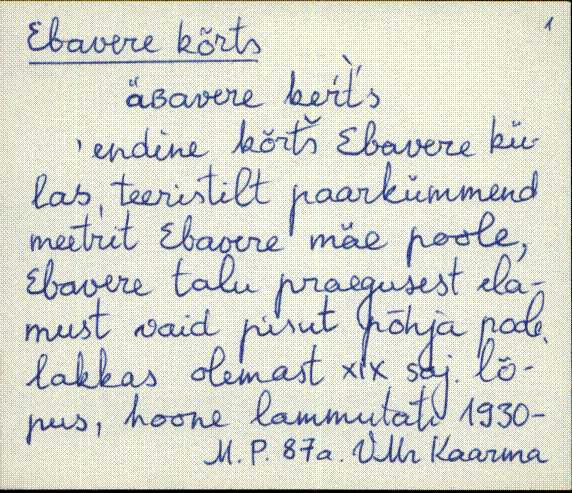 1
Ebavere kõrts
äBavere ker̀t̀s
'endine kõrtš Ebavere kü-
las, teeristilt paarkümmend
meetrit Ebavere mäe poole,
Ebavere talu praegusest ela-
must vaid pisut põhja pool.
lakkas olemast XIX saj. lõ-
pus, hoone lammutati 1930-
M. P. 87a. VMr Kaarma